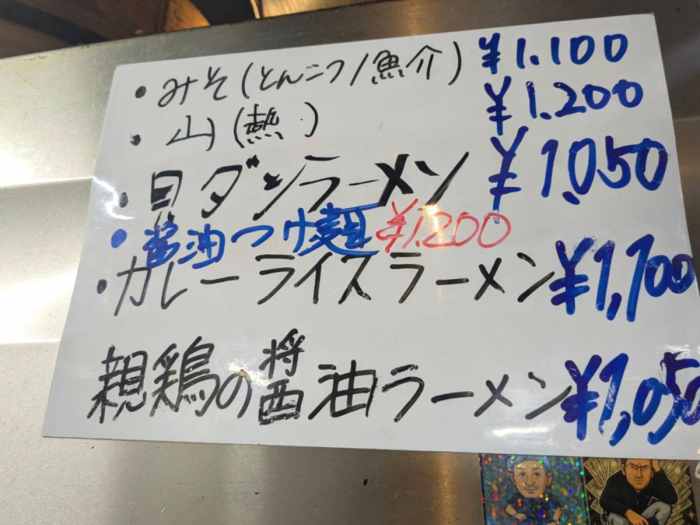 ・みそ(とんこつ/魚介) ¥1.100
・山(熱) ¥1.200
・目ダンラーメン ¥1,050
・醤油つけ麺 ¥1.200
・カレーライスラーメン ¥1,100
親鶏の醤油ラーメン ¥1,050